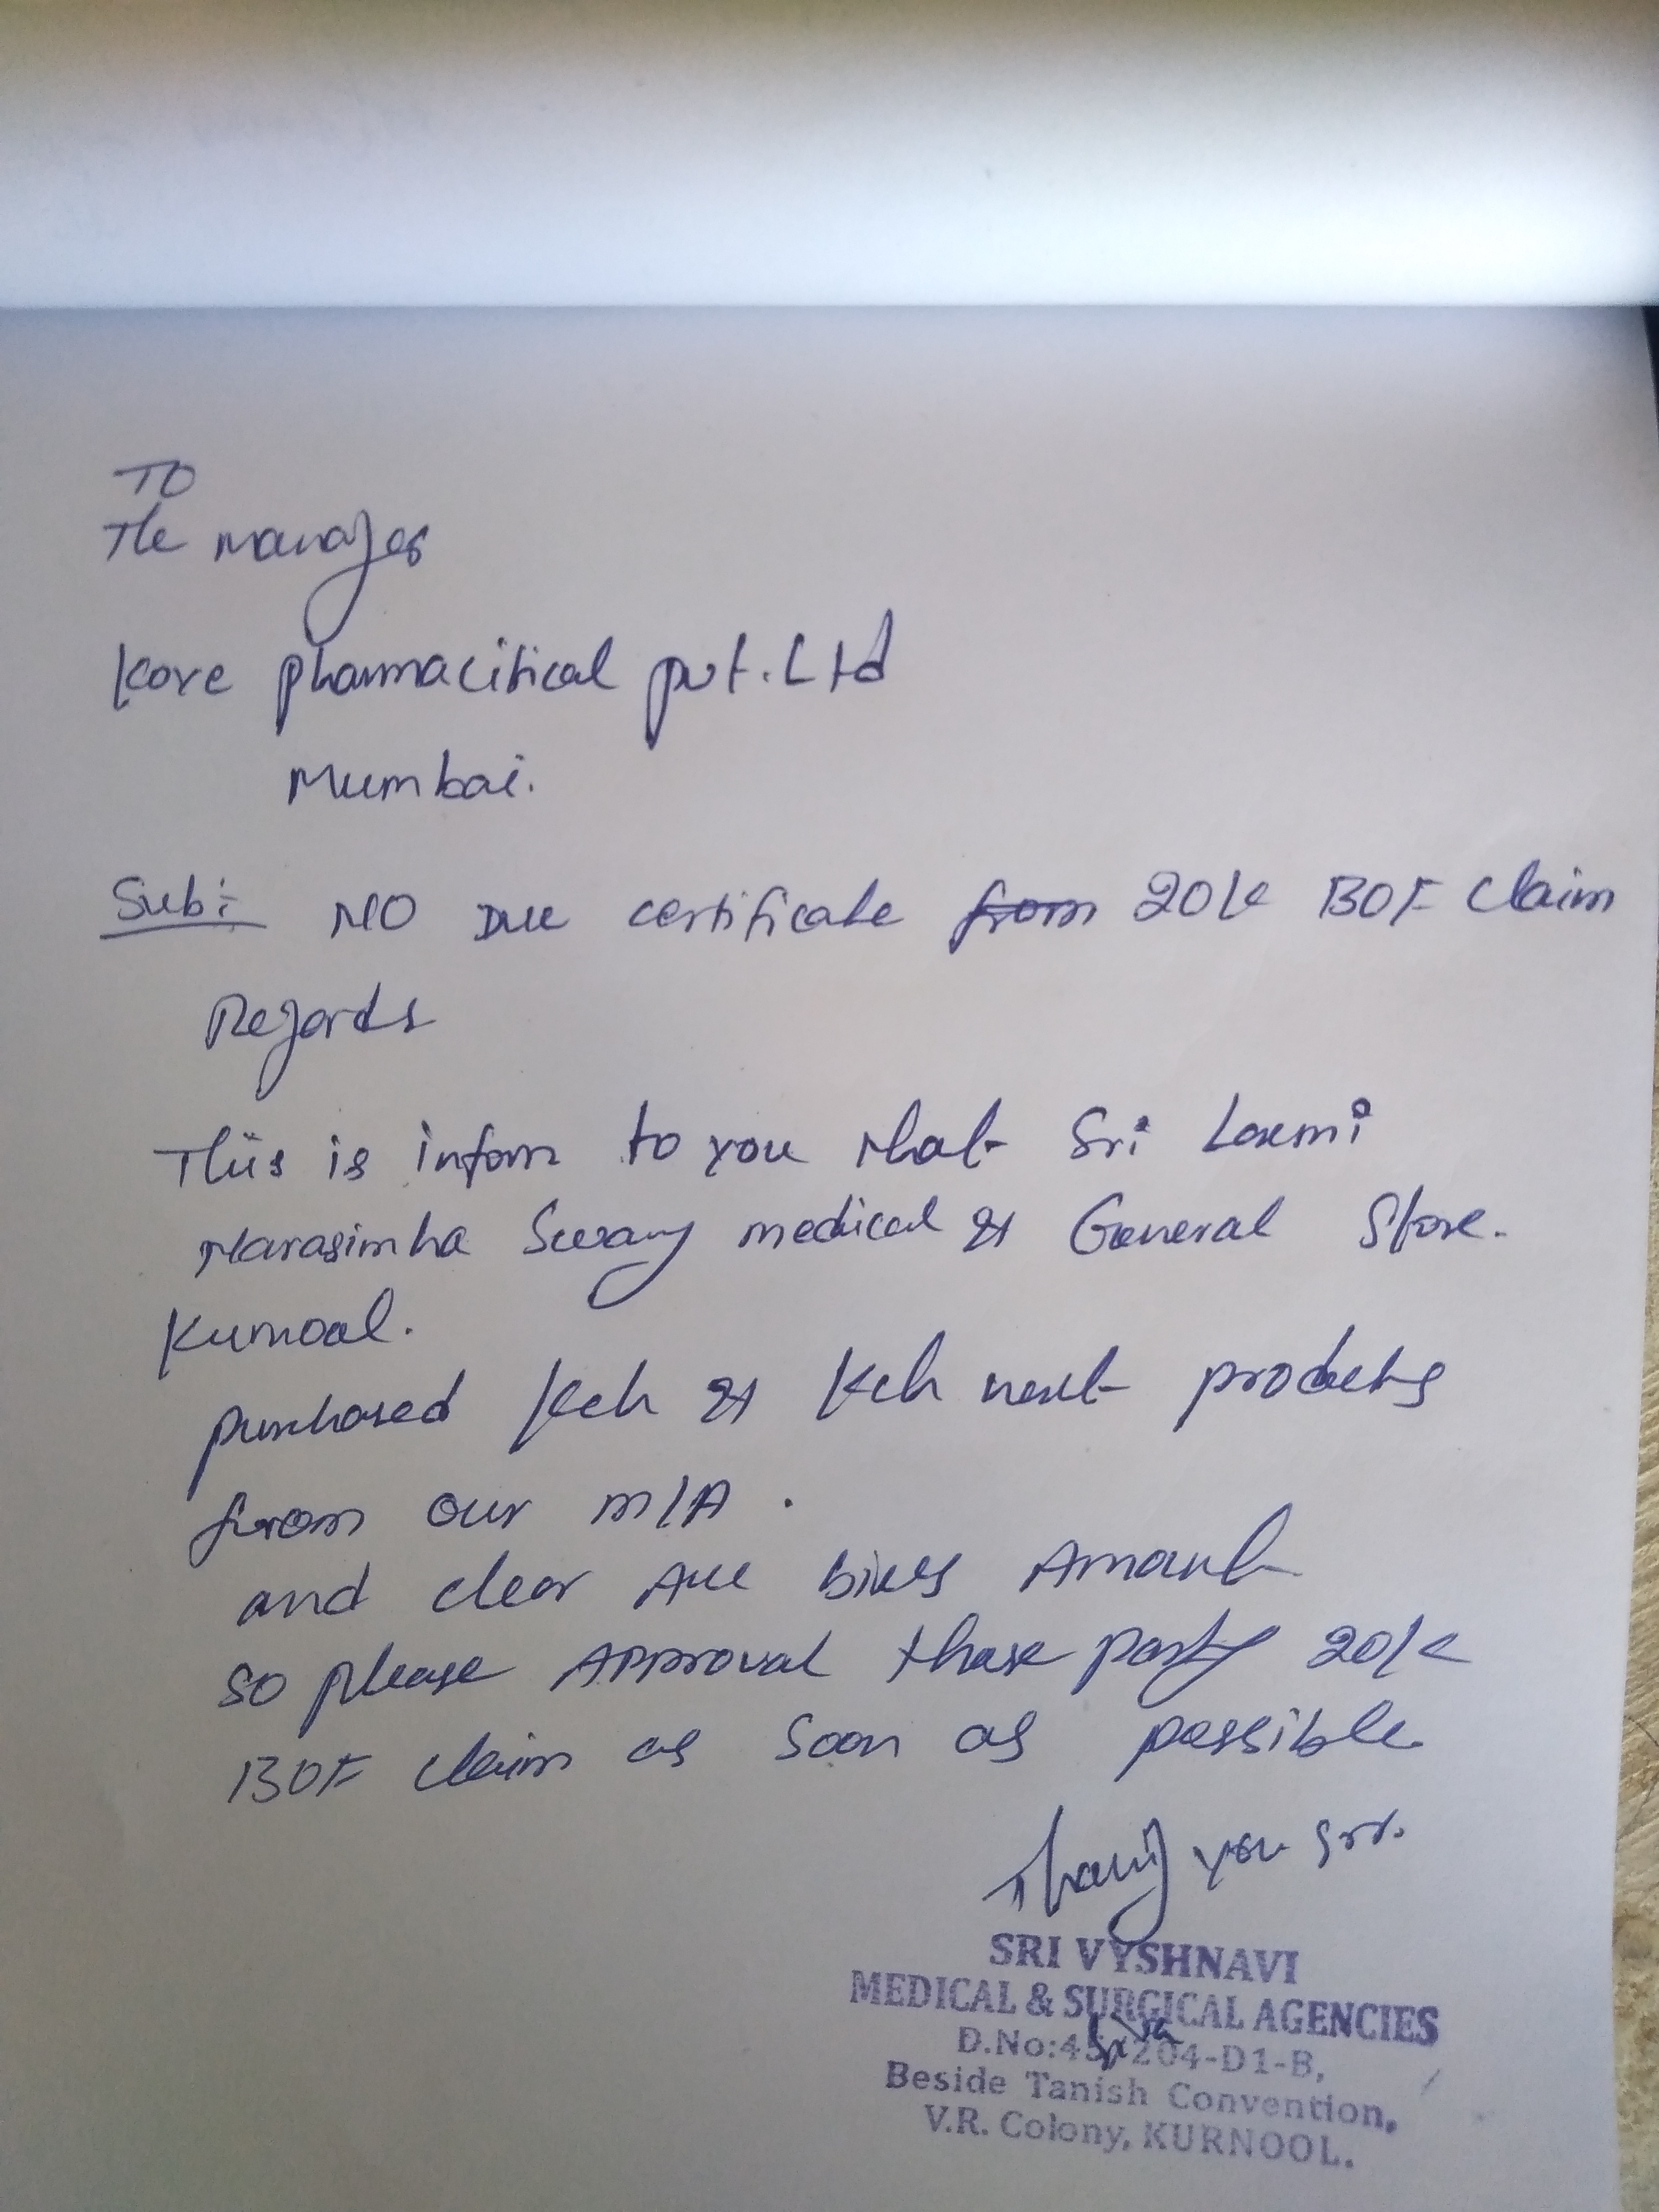 TO
The manager
Kore pharmacitical pvt.Ltd
Mumbai.
Sub:- NO Due certificate from 20k BOF Claim
Regards
This is inform to you that Sri Laxmi
Narasimha Swamy medical & General Store.
Kurnool.
purchased Keh & Keh next products
from our M/A.
and clear All bills Amount
so please Approval these party 20k
BOF claim as soon as possible
Thank you Sir.
SRI VYSHNAVI
MEDICAL & SURGICAL AGENCIES
D.No:45/204-D1-B,
Beside Tanish Convention,
V.R. Colony, KURNOOL.